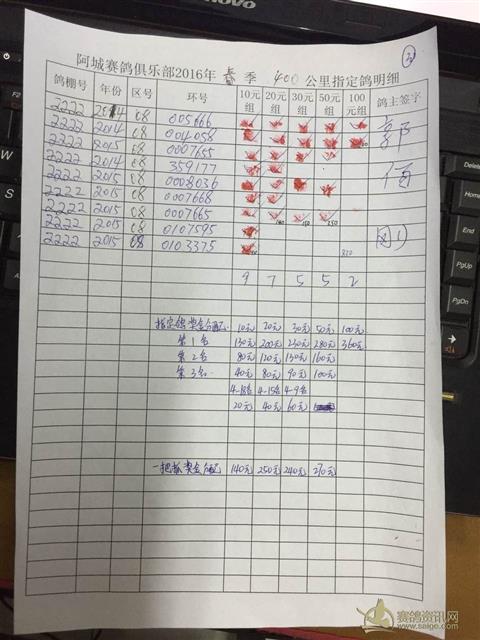 lenovo
③
阿城赛鸽俱乐部2016年 春 季 400 公里指定鸽明细
鸽棚号 年份 区号 环号 10元组 20元组 30元组 50元组 100元组 鸽主签字
2222 2014 08 005666
2222 2014 08 004058
2222 2015 08 0007655
2222 2014 08 359177
2222 2015 08 0008036
2222 2015 08 0007668
2222 2015 08 0007665 140 150 250
2222 2015 08 0107595
2222 2015 08 0103375
9 7 5 5 2
指定鸽奖金分配 10元 20元 30元 50元 100元
第1名 130元 200元 230元 280元 360元
第2名 80元 120元 130元 160元
第3名 40元 80元 90元 100元
4-18名 4-15名 4-9名
20元 40元 60元
一把抓奖金分配 140元 250元 240元 270元
PgUp
PgDn
赛鸽资讯网
www.saige.com